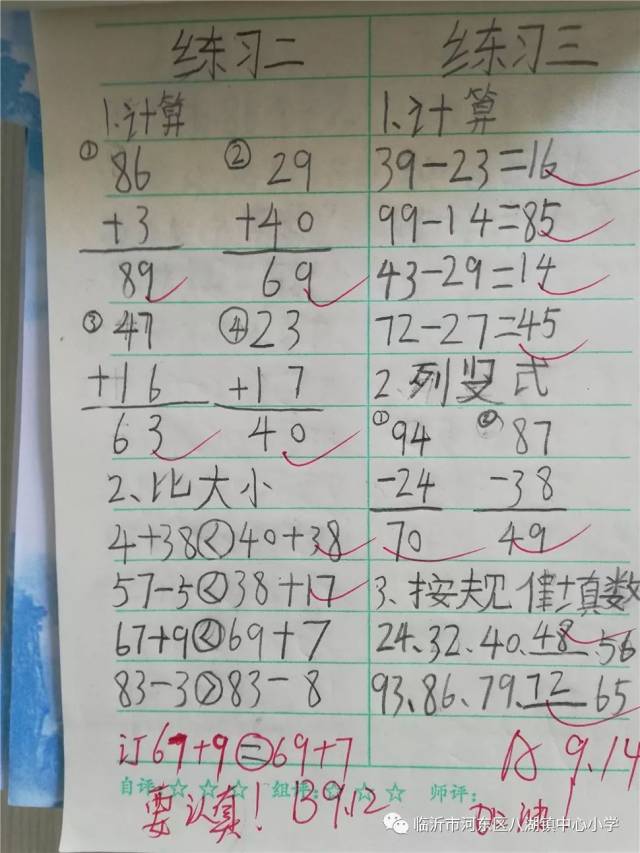 练习二
1.计算
① 86 ② 29
+3 +40
89 69
③ 47 ④ 23
+16 +17
63 40
2、比大小
4+38<40+38
57-5<38+17
67+9<69+7
83-3>83-8
订 67+9=69+7
自评：☆ ☆ ☆ 组评：☆ ☆ ☆ 师评：
要认真！ B 9.12
练习三
1、计算
39-23=16
99-14=85
43-29=14
72-27=45
2.列竖式
① 94 ② 87
-24 -38
70 49
3、按规律填数
24、32、40、48、56
93、86、79、72、65
A 9.14
加油！
临沂市河东区八湖镇中心小学